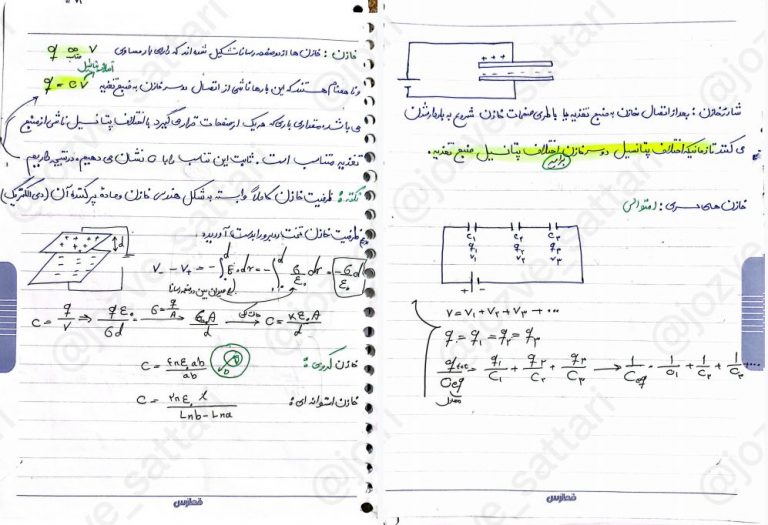 خازن : خازن ها از دو صفحه رسانا تشکیل شده اند که دارای بار مساوی
q ∝ V
متناسب
اختلاف پتانسیل
q = CV
و ناهمنام هستند که این بارها ناشی از اتصال دو سر خازن به منبع تغذیه
می باشد، مقدار باری که هریک از صفحات قرار می گیرد با اختلاف پتانسیل ناشی از منبع
تغذیه متناسب است. ثابت این تناسب را با C نشان می دهیم. در نتیجه داریم
نکته : ظرفیت خازن کاملاً وابسته به شکل هندسی خازن و ماده پرکننده آن (دی الکتریک)
ظرفیت خازن تخت روبرو را بدست آورید :
V₋ − V₊ = −∫E.dr = −∫₀ᵈ σ/ε₀ dr = −σd/ε₀
میدان بین دو صفحه رسانا
C = q/V ⇒ qε₀/σd σ = q/A → ε₀A/d → C = κε₀A/d
خازن کروی : C = ۴πε₀ab/ab
خازن استوانه ای : C = ۲πε₀l/Lnb−Lna
شارژ خازن : بعد از اتصال خازن به منبع تغذیه یا باطری صفحات خازن شروع به باردار شدن
می کنند تا زمانیکه اختلاف پتانسیل دو سر خازن با اختلاف پتانسیل منبع تغذیه.
برابر شود
خازن های سری : (متوالی)
C₁ C₂ C₃
q₁ q₂ q₃
V₁ V₂ V₃
V = V₁ + V₂ + V₃ + ...
q = q₁ = q₂ = q₃
q/Ceq = q₁/C₁ + q₂/C₂ + q₃/C₃ → 1/Ceq = 1/C₁ + 1/C₂ + 1/C₃ ...
معادل
@jozve_sattari